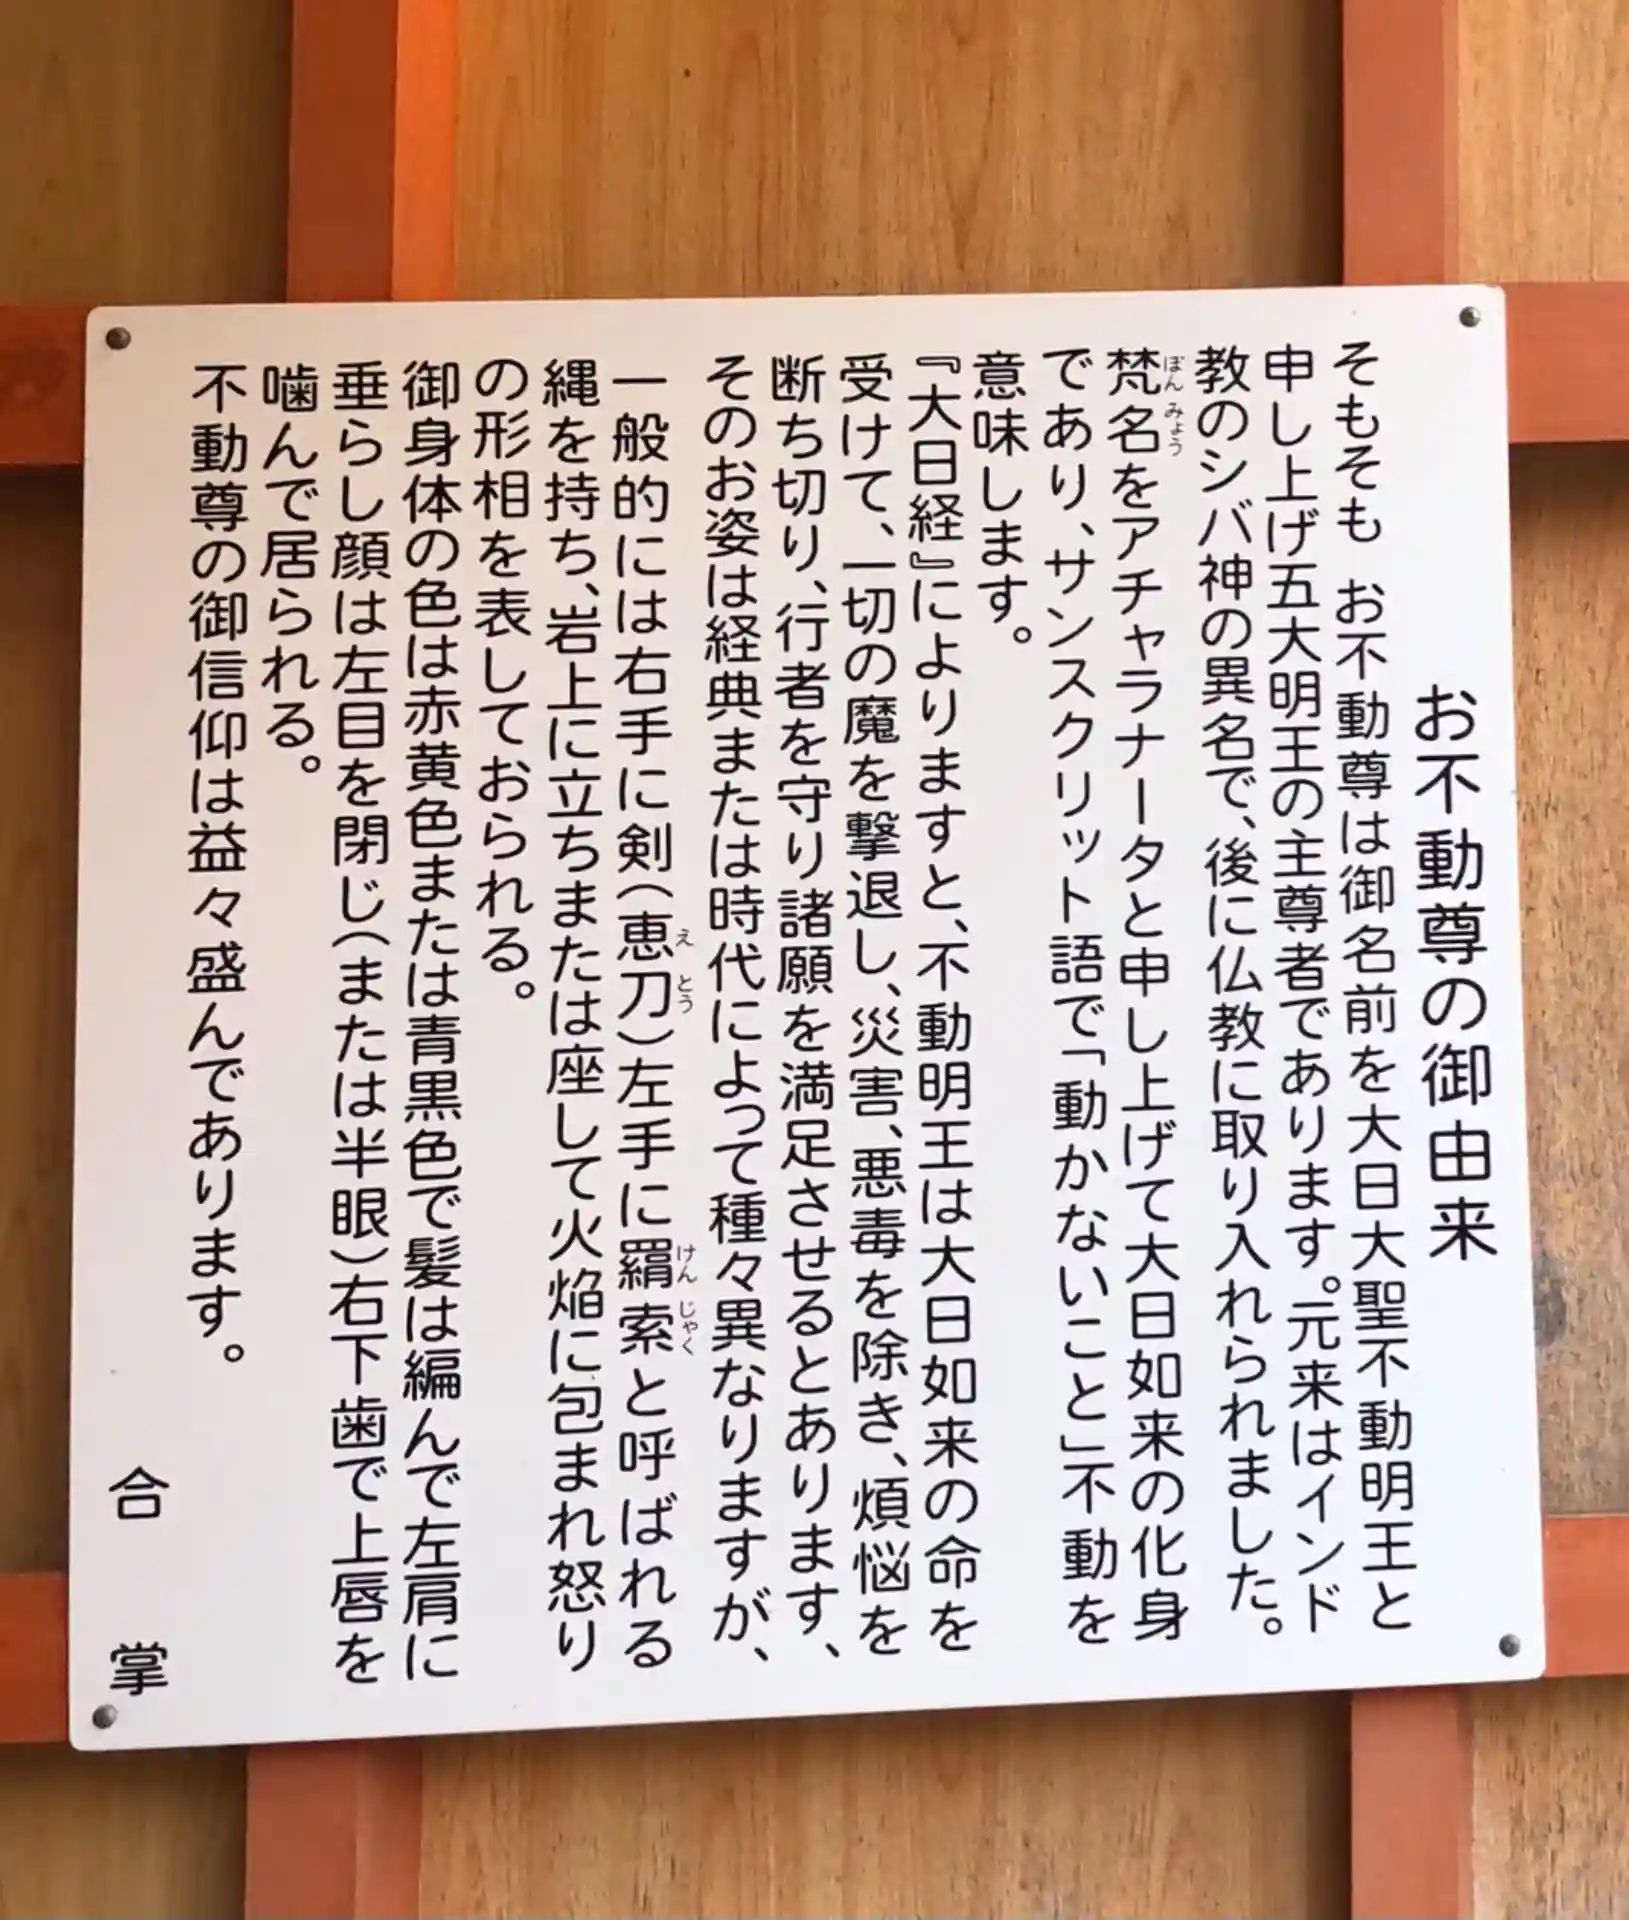 お不動尊の御由来
そもそも お不動尊は御名前を大日大聖不動明王と
申し上げ五大明王の主尊者であります。元来はインド
教のシバ神の異名で、後に仏教に取り入れられました。
梵名をアチャラナータと申し上げて大日如来の化身
ぼんみょう
であり、サンスクリット語で「動かないこと」不動を
意味します。
『大日経』によりますと、不動明王は大日如来の命を
受けて、一切の魔を撃退し、災害、悪毒を除き、煩悩を
断ち切り、行者を守り諸願を満足させるとあります、
そのお姿は経典または時代によって種々異なりますが、
一般的には右手に剣(恵刀)左手に羂索と呼ばれる
えとう けんじゃく
縄を持ち、岩上に立ちまたは座して火焔に包まれ怒り
の形相を表しておられる。
御身体の色は赤黄色または青黒色で髪は編んで左肩に
垂らし顔は左目を閉じ(または半眼)右下歯で上唇を
噛んで居られる。
不動尊の御信仰は益々盛んであります。
合 掌